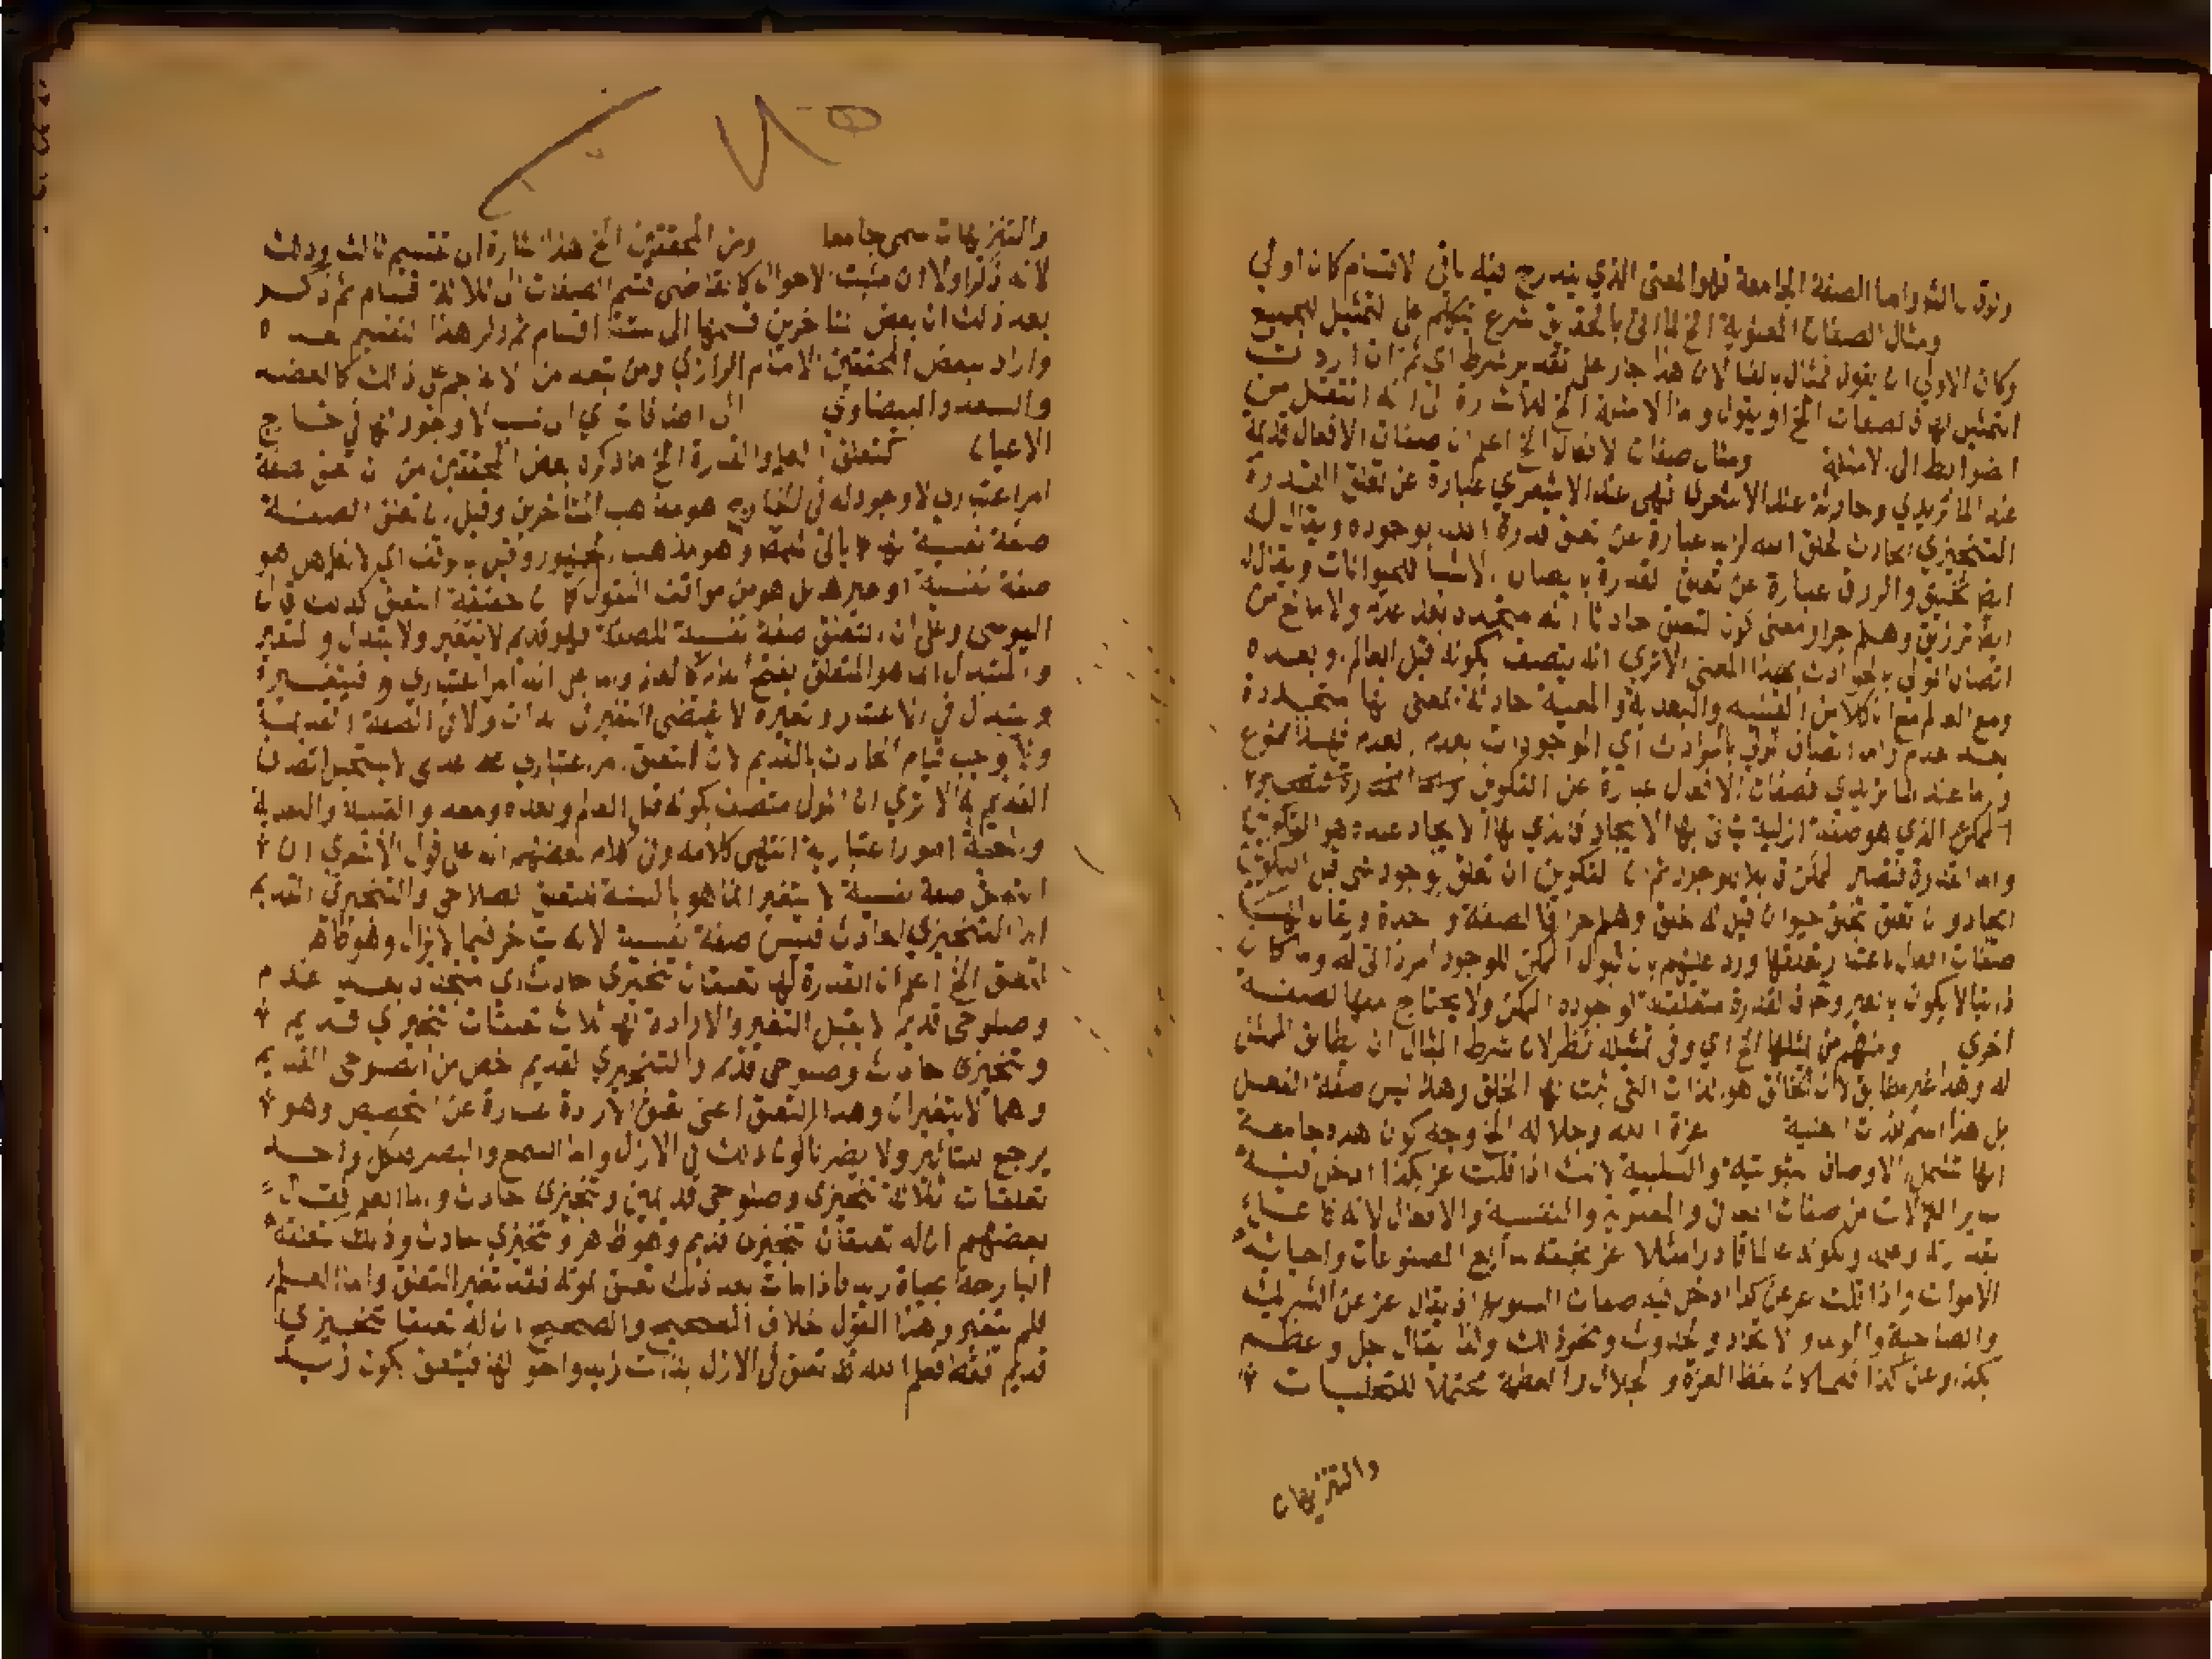 ولو قال الشو واما الصفة الجامعة فهو المعنى الذي يندرج فيه باقي الاقسام كان اولي
ومثال الصفات المعنوية الخ لما اتى بالحقايق شرع يتكلم على التمثيل للجميع
وكان الاولي ان يقول فمثال بالفا لان هذا جار على تقدير شرط اي ثم ان اردت
التمثيل لهذه الصفات الخ او يقول وهذه الامثلة الخ للاشارة الى انه انتقل من
الضوابط الى الامثلة ومثال صفات الافعال الخ اعلم ان صفات الافعال قديمة
عند الماتريدي وحادثة عند الاشعري فهي عند الاشعري عبارة عن تعلق القدرة
التنجيزي الحادث فخلق الله لزيد عبارة عن تعلق قدرة الله بوجوده ويقال له
ايضا تخليق والرزق عبارة عن تعلق القدرة بايصال الاشيا للحيوانات ويقال له
ايضا ترزيق وهلم جرا ومعنى كون التعلق حادثا انه متجدد بعد عدم ولا مانع من
اتصاف المولى بالحوادث بهذا المعنى الا ترى انه يتصف بكونه قبل العالم وبعده
ومع العالم مع ان كلا من القبلية والبعدية والمعية حادثة بمعنى انها متجددة
بعد عدم واما اتصاف المولى بالحوادث اي الموجودات بعد العدم فهذا ممنوع
واما عند الماتريدي فصفات الافعال عبارة عن التكوين
الممكن الذي هو صفة ازلية يتاتى بها الايجاد فالذي بها الايجاد عنده هو التكوين
واما القدرة فتصير الممكن قابلا للوجود ثم ان التكوين ان تعلق بوجود شي قيل له
ايجاد وان تعلق بخلق حيوان قيل له خلق وهلم جرا فالصفة واحدة ويقال لها
صفات افعال باعتبار تعلقها ورد عليهم بان قبول الممكن للوجود امر ذاتي له وما كان
ذاتيا لا يكون بالغير وحينئذ فالقدرة متعلقة بوجود الممكن ولا يحتاج معها لصفة
اخري ومنهم من يمثلها الخ اي وفي تمثيله نظر لان شرط المثال ان يطابق الممثل
له وهذا غير مطابق لان الخالق هو الذات التي ثبت لها الخلق وهذا ليس صفة الفعل
بل هذا اسم للذات العلية عزة الله وجلاله الخ وجه كون هذه جامعة
انها تشمل الاوصاف الثبوتية والسلبية لانك اذا قلت عز بكذا ادخل فيه
سائر الكمالات من صفات المعاني والمعنوية والنفسية والافعال لانه
بقدرته وعلمه وبكونه عالما قادرا مثلا عز بخلقه بدائع المصنوعات واحيائه
الاموات واذا قلت عز عن كذا ادخل فيه صفات السلوب اذ يقال عز عن الشريك
والصاحبة والولد والاتحاد والحدوث ونحو ذلك وكذا يقال جل وعظم
بكذا وعن كذا فصار لفظ العزة والجلال والعظمة محتملا للسلبيات
والتنزيهات
والتنزيهات سمي جامعا ومن المحققين الخ هذا اشارة الى تقسيم ثالث وذلك
لانه ذكر اولا ان مثبت الاحوال كالقاضي قسم الصفات الى ثلاثة اقسام ثم ذكر
بعد ذلك ان بعض المتاخرين قسمها الى ستة اقسام ثم ذكر هذا التقسيم بعده
واراد ببعض المحققين الامام الرازي ومن تبعه من الاعاجم على ذلك كالعضد
والسعد والبيضاوي الى اضافات اي الى نسب لا وجود لها في خارج
الاعيان كتعلق العلم والقدرة الخ ما ذكره بعض المحققين من ان تعلق الصفة
امر اعتباري لا وجود له في الخارج هو مذهب المتاخرين وقيل ان تعلق الصفة
صفة نفسية لها وهو مذهب الجمهور وقيل بالوقف اي لا نعلم هل هو
صفة نفسية او غيرها بل هو من مواقف العقول كما ان حقيقة التعلق كذلك قال
اليوسي وعلى ان التعلق صفة نفسية للصفة فهو قديم لا يتغير ولا يتبدل والتغير
والتبدل انما هو للمتعلق بفتح اللام كالمقدور واما على انه امر اعتباري فتغيره
وتبدله في الاعتبار وتغيره لا يقتضي التغير في الذات ولا في الصفة القديمة
ولا يوجب قيام الحادث بالقديم لان التعلق امر اعتباري عدمي لا يستحيل اتصاف
القديم به الا ترى ان المولى متصف بكونه قبل العالم وبعده ومعه والقبلية والبعدية
والمعية امور اعتبارية انتهى كلامه وفي كلام بعضهم انه على قول الاشعري ان
التعلق صفة نفسية لا يتغير انما هو بالنسبة للتعلق الصلاحي والتنجيزي القديم
اما التنجيزي الحادث فليس صفة نفسية لانه يتاخر فيما لا يزال وهو ظاهر
لتعلق الخ اعلم ان القدرة لها تعلقان تنجيزي حادث اي متجدد بعد عدم
وصلوحي قديم لا يقبل التغير والارادة لها ثلاث تعلقات تنجيزي قديم
وتنجيزي حادث وصلوحي قديم والتنجيزي القديم اخص من الصلوحي القديم
وهما لا يتغيران وهذا التعلق اعني تعلق الارادة عبارة عن التخصيص وهو
يرجع للتاثير ولا يضرنا كون ذلك في الازل واما السمع والبصر فلكل واحد
تعلقات ثلاثة تنجيزي وصلوحي قديمين وتنجيزي حادث واما العلم فقال
بعضهم ان له تعلقان تنجيزي قديم وهو ظاهر وتنجيزي حادث وذلك كتعلقه
البارحة بحياة زيد فاذا مات بعد ذلك تعلق بموته فقد تغير التعلق واما العلم
فلم يتغير وهذا القول خلاف الصحيح والصحيح ان له تعلقا تنجيزي
قديم فقط فعلم الله تعلق في الازل بذات زيد واحواله فيتعلق بكون زيد